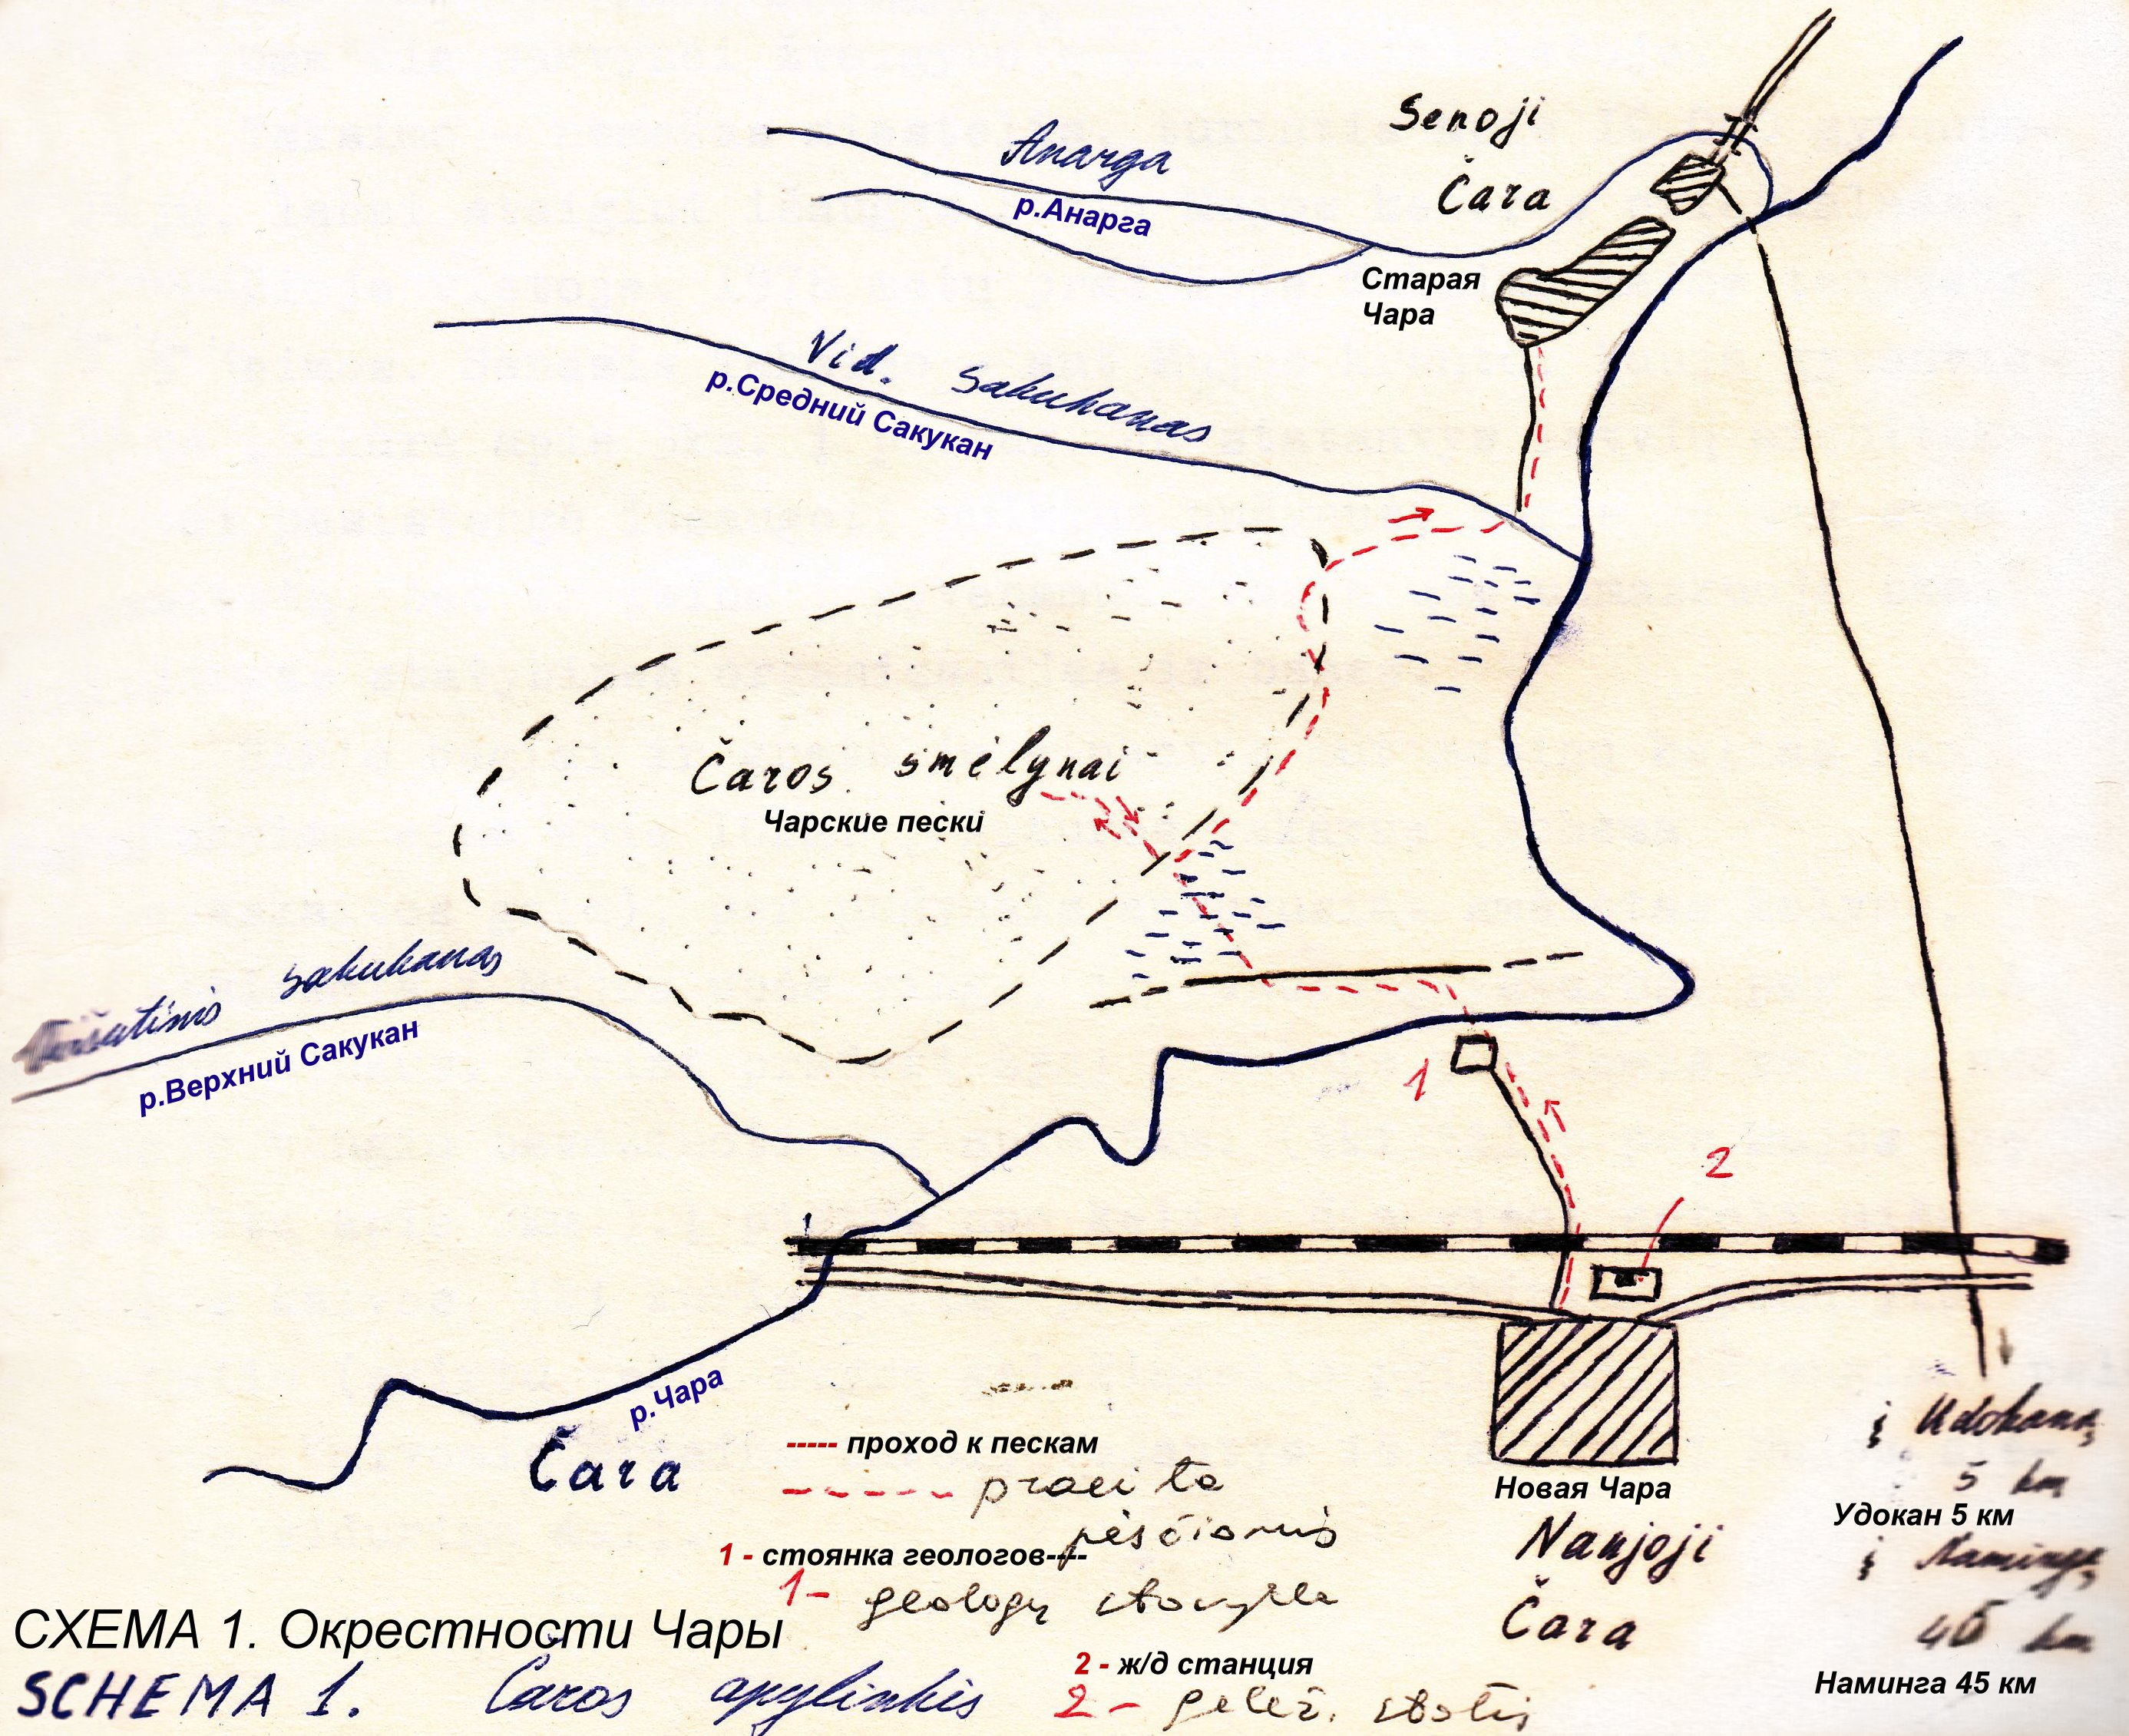 Senoji
Čara
Anarga
р.Анарга
Старая
Чара
Vid. Sakukanas
р.Средний Сакукан
Čaros smėlynai
Чарские пески
Sakukanas
р.Верхний Сакукан
1
2
р.Чара
Čara
----- проход к пескам
praeita
pėsčiomis
1 - стоянка геологов----
1- geologų stovykla
2 - ж/д станция
2 - gelež. stotis
Новая Чара
Naujoji
Čara
į Udokaną
5 km
Удокан 5 км
į Namingą
45 km
Наминга 45 км
СХЕМА 1. Окрестности Чары
SCHEMA 1. Čaros apylinkės